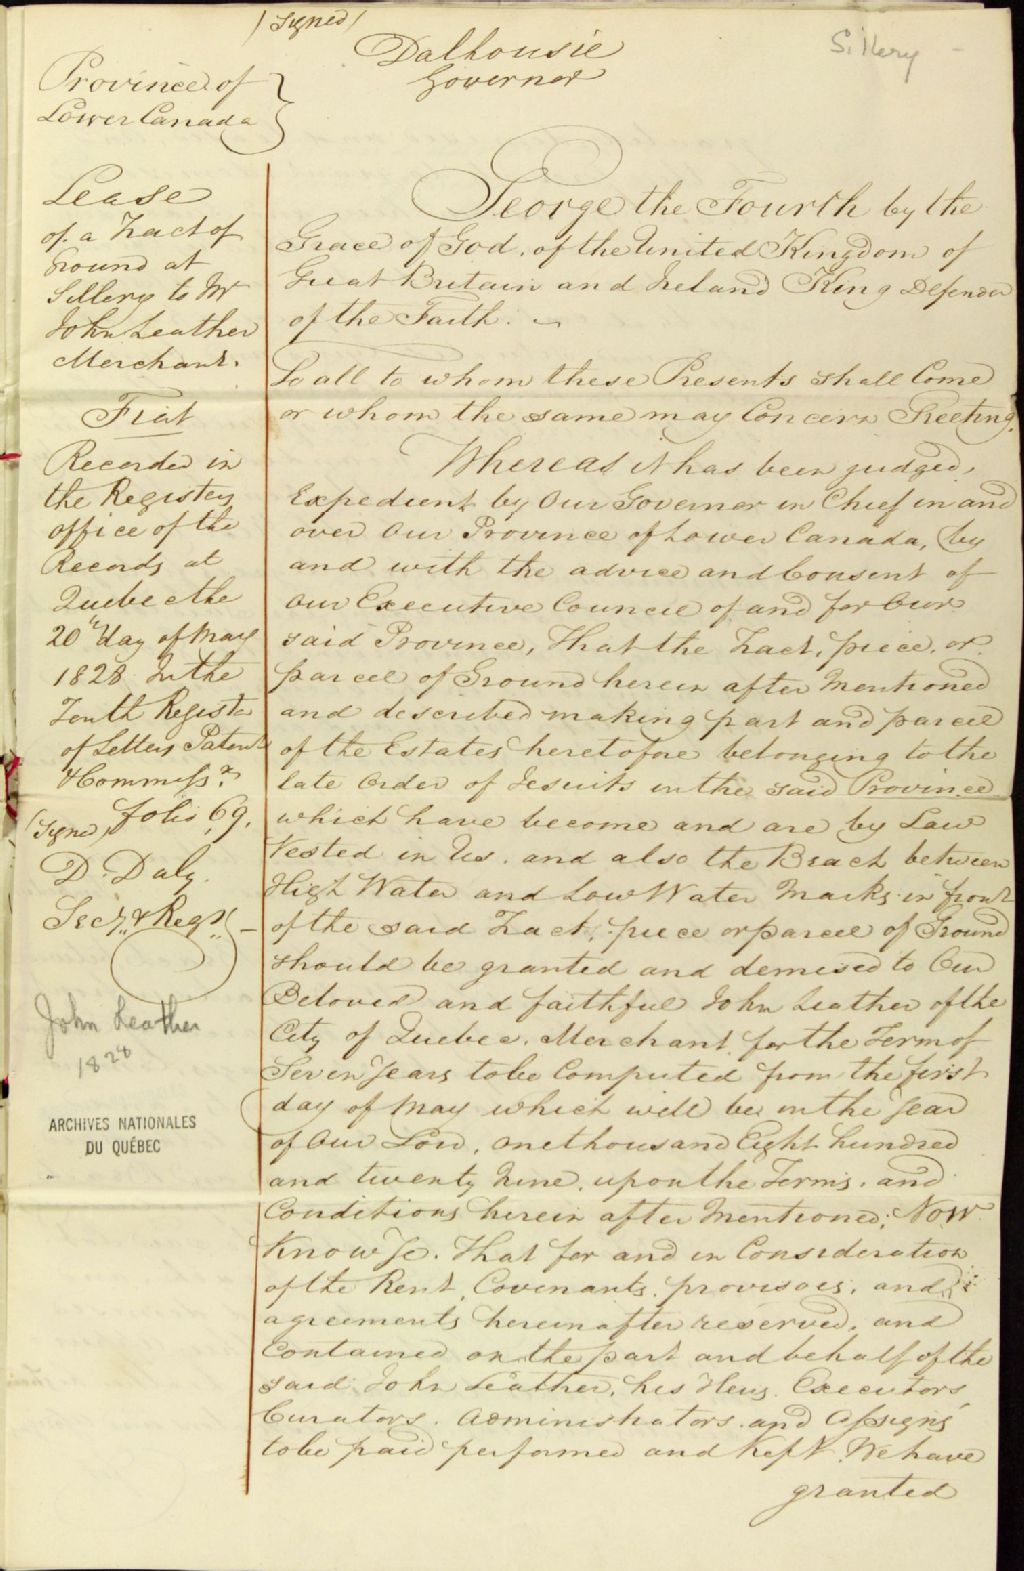 (Signed)
Dalhousie
Governor
Sillery
Province of
Lower Canada
Lease
of a Tract of
Ground at
Sillery to Mr
John Leather
Merchant.
Fiat
Recorded in
the Registry
office of the
Records at
Quebec the
20th day of May
1828 In the
Tenth Register
of Letters Patent
& Commissns
folio 69.
(Signed)
D. Daly.
Secy. & Regr.
John Leather
1828
ARCHIVES NATIONALES
DU QUÉBEC
George the Fourth by the
Grace of God, of the United Kingdom of
Great Britain and Ireland King Defender
of the Faith.
To all to whom these Presents shall Come
or whom the same may Concern Greeting.
Whereas it has been judged,
Expedient by Our Governor in Chief in and
over Our Province of Lower Canada, by
and with the advice and Consent of
our Executive Council of and for Our
said Province, That the Tract, piece, or
parcel of Ground herein after Mentioned
and described making part and parcel
of the Estates heretofore belonging to the
late Order of Jesuits in the said Province
which have become and are by Law
Vested in Us. and also the Beach between
High Water and Low Water Marks in front
of the said Tract, piece or parcel of Ground
should be granted and demised to Our
Beloved and faithful John Leather of the
City of Quebec, Merchant for the Term of
Seven Years to be Computed from the first
day of May which will be in the Year
of Our Lord, one thousand Eight hundred
and twenty Nine, upon the Terms, and
Conditions herein after Mentioned; Now
Know Ye. That for and in Consideration
of the Rent, Covenants, provisoes, and
agreements herein after reserved, and
Contained on the part and behalf of the
said John Leather, his Heirs, Executors
Curators, Administrators and Assigns
to be paid performed and Kept. We have
granted